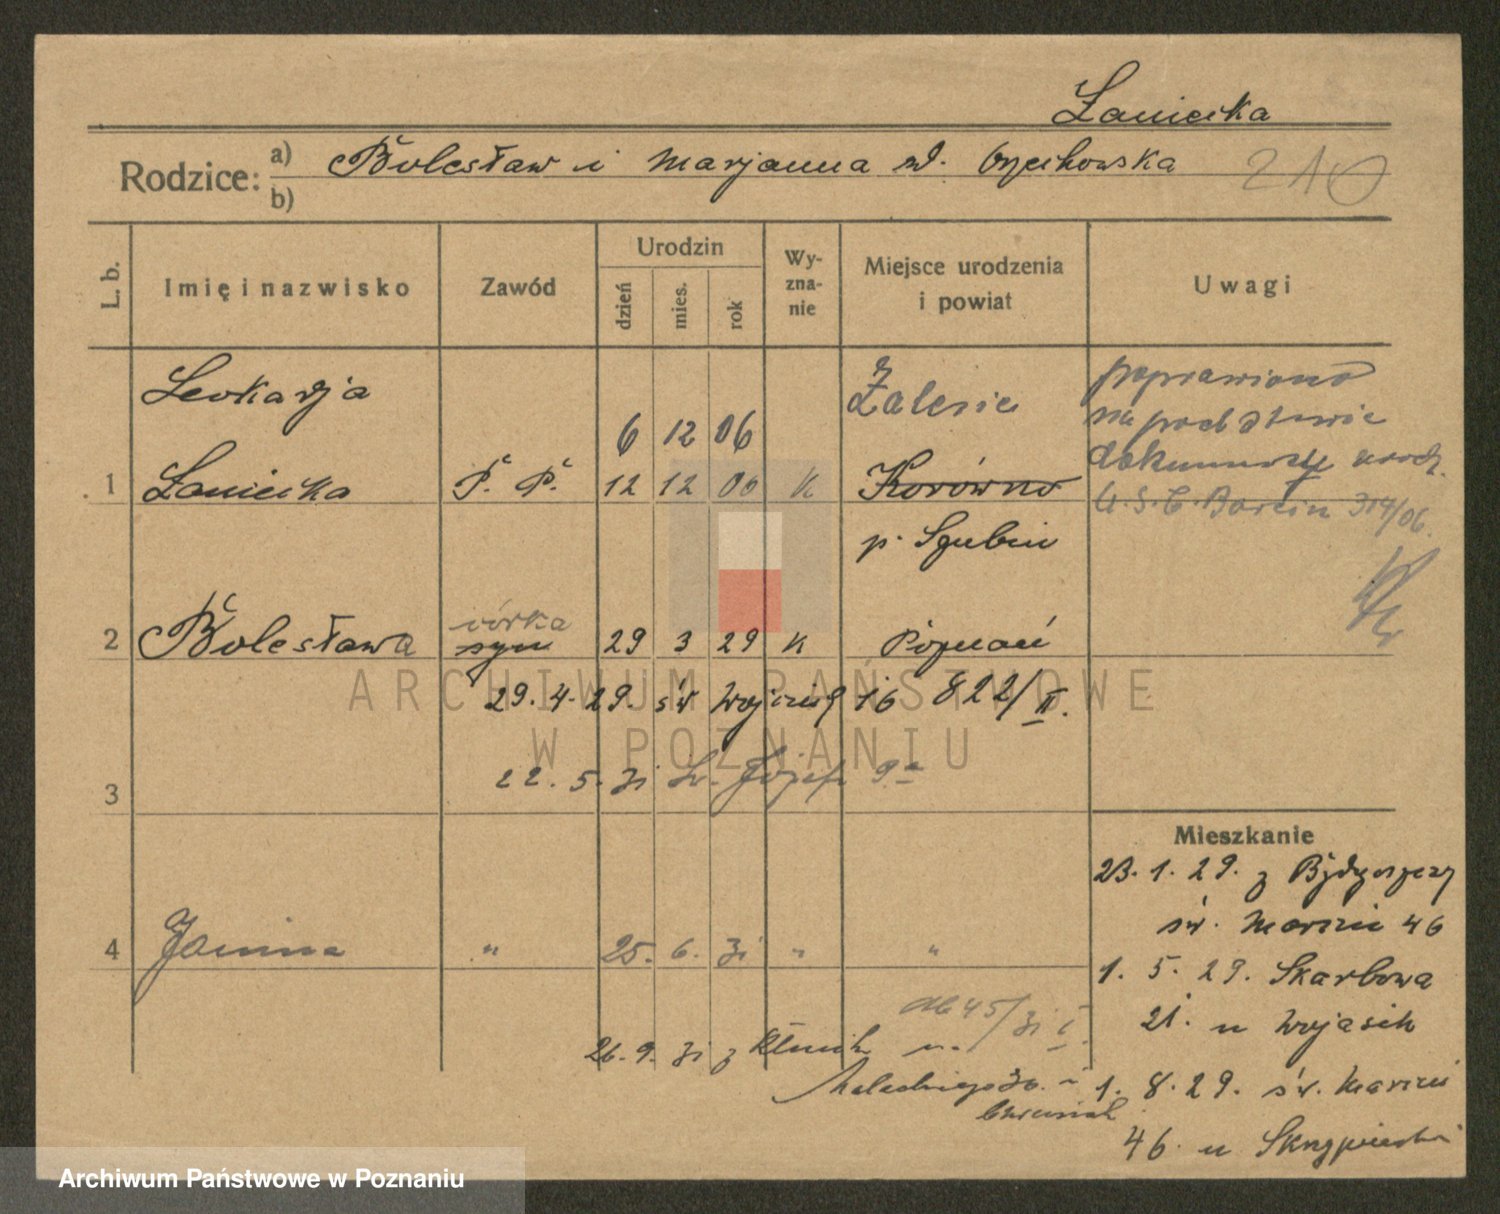 Łaniecka
Rodzice: a) Bolesław i Marjanna zd. Orzechowska
b)
210
L. b.
Imię i nazwisko
Zawód
Urodzin
dzień
mies.
rok
Wy-
zna-
nie
Miejsce urodzenia
i powiat
Uwagi
Leokadja
6 12 06
Zalesie
1 Łaniecka P. P. 12 12 06 K
p. Szubin
poprawiono
na podstawie
dokumentu urodz.
U.S.C. Barcin 314/06.
2 Bolesława córka syn 29 3 29 K Poznań
29. 4. 29. św Wojciech 16 822/II.
3
22. 5. 31 św. Józefa 9a
4 Janina " 25. 6. 31 " "
45/31 I.
26. 9. 31 z
Mieszkanie
23. 1. 29. z Bydgoszczy
św. Marcin 46
1. 5. 29. Skarbowa
21. u Wojasik
1. 8. 29. św. Marcin
46. u
ARCHIWUM PAŃSTWOWE
W POZNANIU
Archiwum Państwowe w Poznaniu